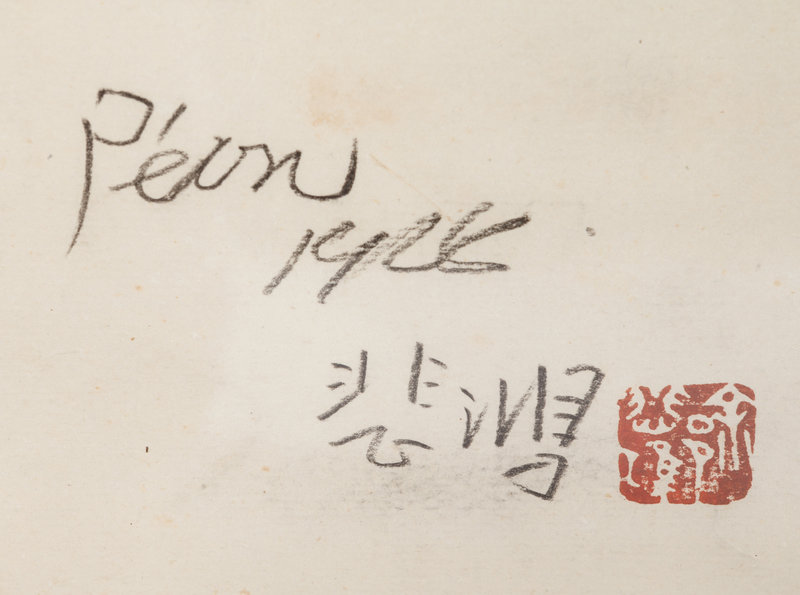 Péon
1926
悲鴻